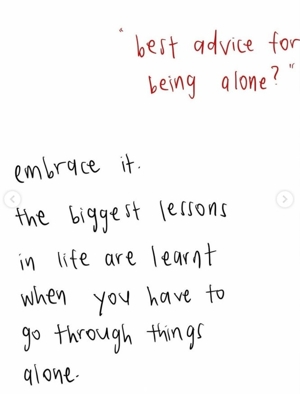 "best advice for
being alone?"
embrace it.
the biggest lessons
in life are learnt
when you have to
go through things
alone.